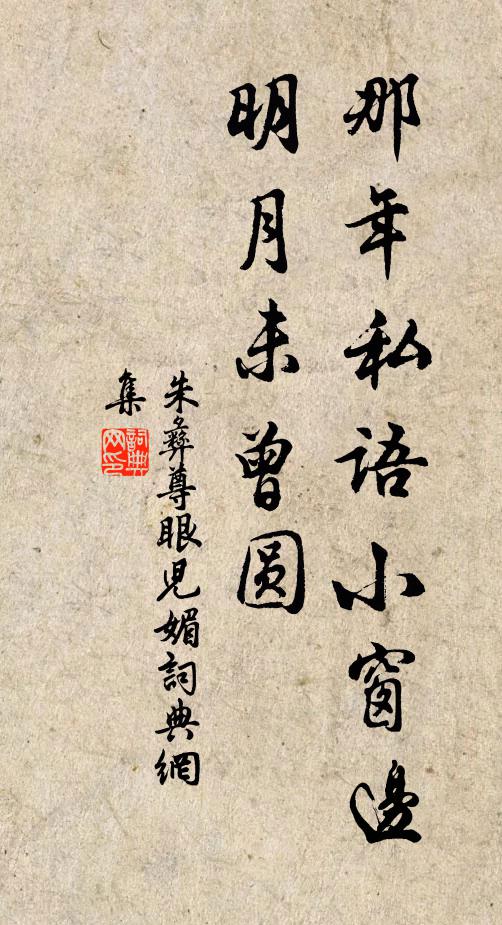 那年私语小窗邊
明月未曾圆
朱彝尊眼児媚詞典網
集
詞典网印